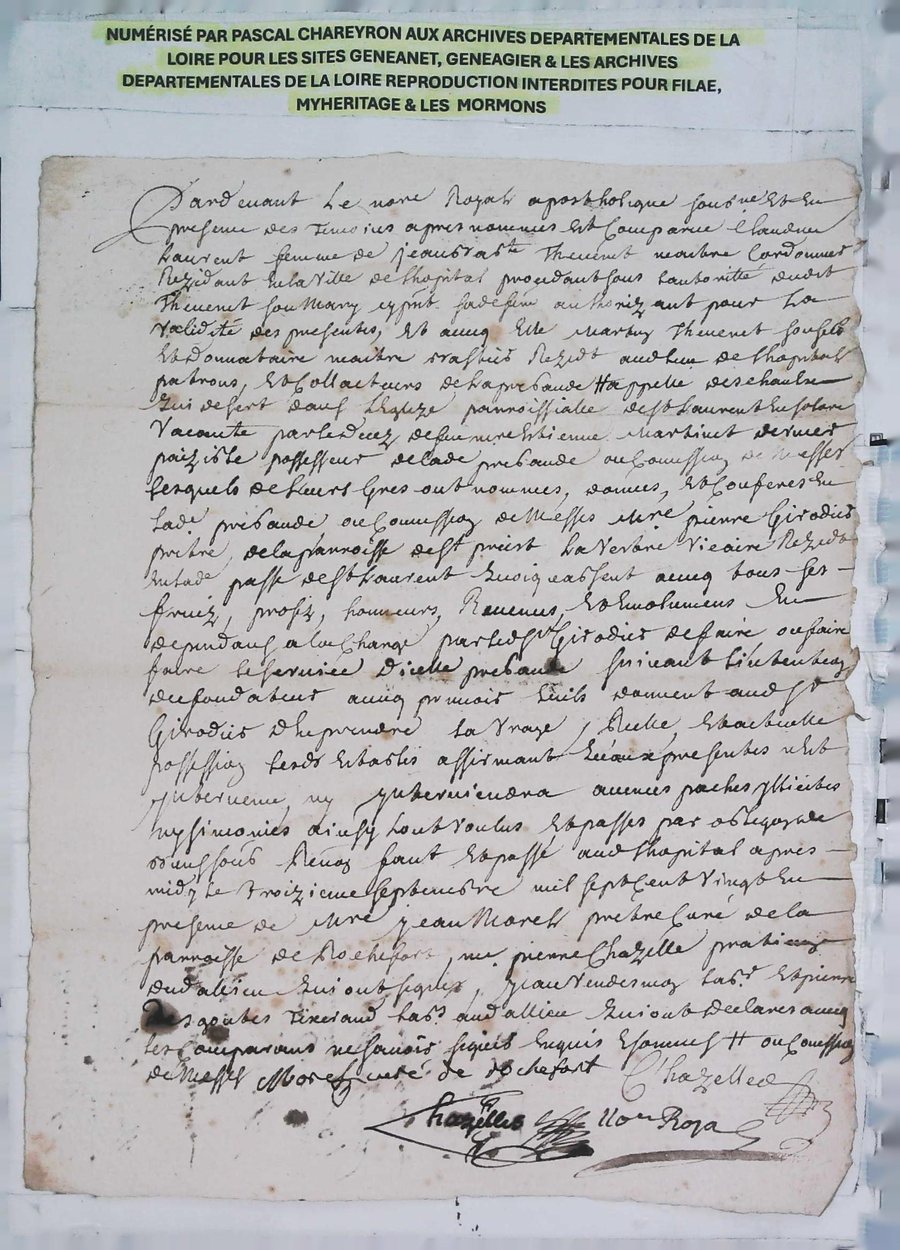 NUMÉRISÉ PAR PASCAL CHAREYRON AUX ARCHIVES DEPARTEMENTALES DE LA
LOIRE POUR LES SITES GENEANET, GENEAGIER & LES ARCHIVES
DEPARTEMENTALES DE LA LOIRE REPRODUCTION INTERDITES POUR FILAE,
MYHERITAGE & LES MORMONS
Pardevant Le nore Royal apostholique sousne Et En
presence des Temoins apres nommes Est Comparue Claudine
Laurent femme de jean Thevenet maitre Cordonnier
Rezidant En la Ville de Lhopital procedant sous Lautoritté dudit
Thevenet son Mary authorizant pour La
Validité des presentes, Et avecq Elle Thevenet son fils
Et donnataire maitre Rezidt aud lieu de Lhopital
patrons, Et Collateurs de La prebande # appellé
qui desert dans Leglize parroissialle de St Laurent En Solore
Vacante par le decez de feu mre Estienne Martinet dernier
paizible possesseur de lade prebande ou Commission de Messes
Lesquels de Leurs Gres ont nommes, donnes, Et Conferes En
Lade prebande ou Commission de Messes Mre pierre Girodies
pretre de la parroisse de St priest La Vestre Vicaire Rezidt
En lade de St Laurent avecq tous ses
fruiz, profiz, honneurs, Revenus, Et Emolumens En
dependans a la Charge par led Sr Girodies de faire ou faire
faire Le service dicelle prebande suivant Lintention
des fondateurs avecq quils donnent aud Sr
Girodies den prendre La Vraye, Reelle, Et actuelle
possession affirmant presentes nest
Intervenue, ny Interviendra aucunes paches Illicites
ny simonies ainsy Lont Voulus Et passes par
fait Et passé aud Lhopital apres
midy Le Troizieme Septembre mil Sept Cent Vingt En
presence de Mre jean Morel pretre Curé de la
parroisse de Rochefort, me pierre Chazelle praticien
dud allieu qui ont signes, jean Labr Et pierre
Desgouttes Tixerand Labr aud allieu qui ont declares avecq
Les Comparans ne savoir signer Enquis Et sommes # ou Commission
de Messes Morel curé de rochefort Chazelle
Chazelles nore Roya